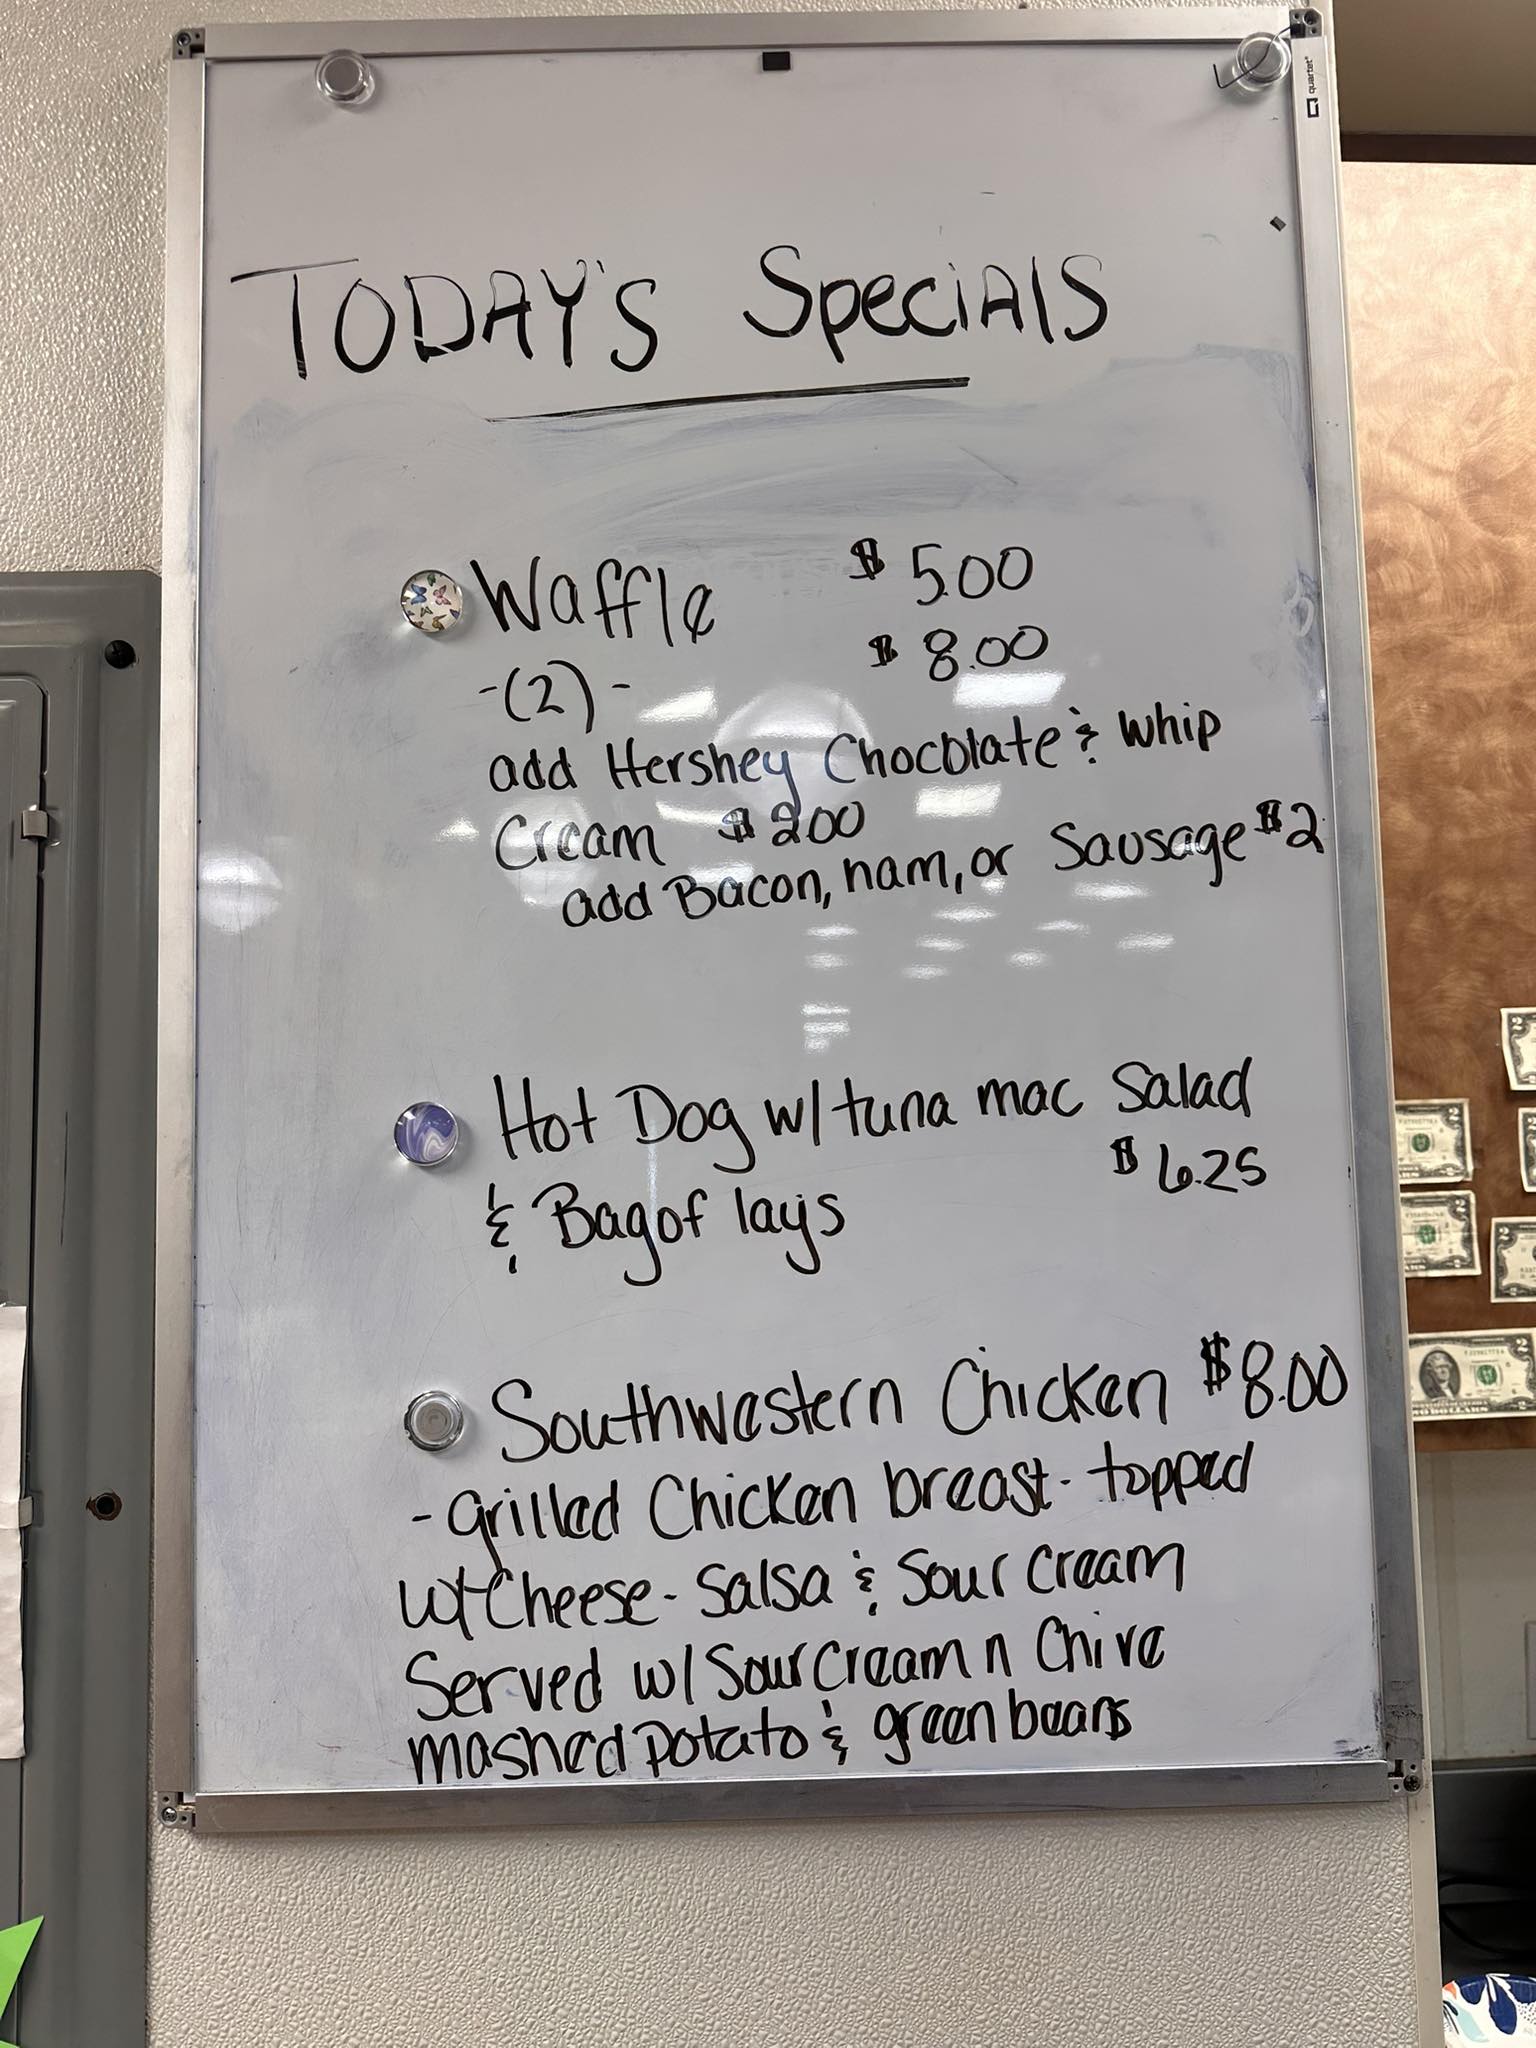 quartet
TODAY'S SpeciAlS
Waffle $ 5.00
-(2)- $ 8.00
add Hershey Chocolate & whip
Cream $ 2.00
add Bacon, ham, or Sausage $2
Hot Dog w/ tuna mac Salad
$ 6.25
& Bag of lays
Southwestern Chicken $8.00
- grilled Chicken breast - topped
w/ Cheese - Salsa & Sour Cream
Served w/ Sour Cream n Chive
mashed potato & green beans